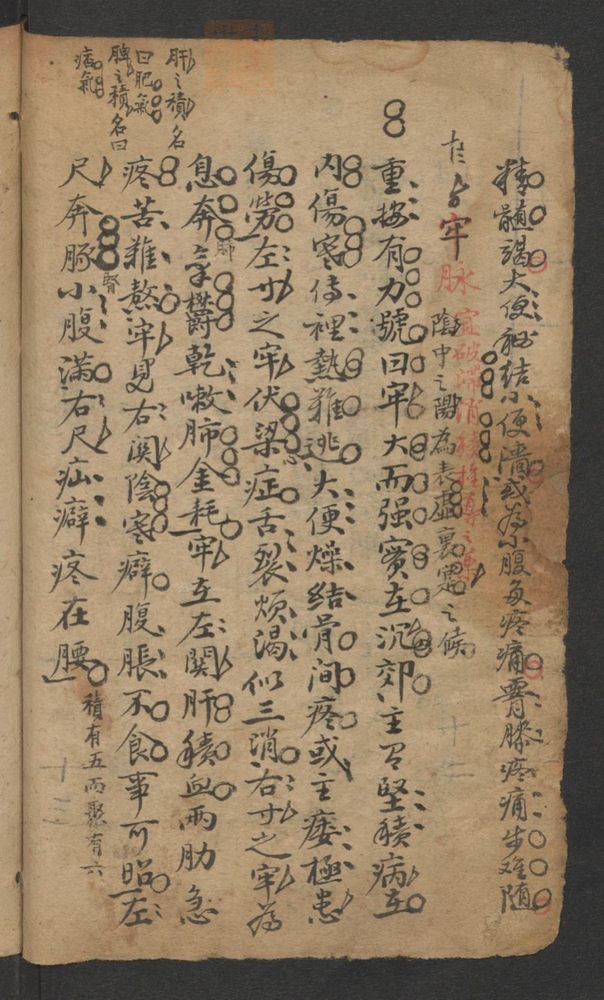 精髓竭大便秘結小便濇或為小腹多疼痛膏膝疼痛步难随
牢脉宜破滿消積
陰中之陽為表虛裏寔之候
重按有力號曰牢大而强實在沉郊主堅積病在
內傷寒傳裡熱难逃大便燥結骨间疼或主痿極患
傷勞左寸之牢伏梁症舌裂烦渴似三消右寸之牢為
息奔
肺
欝乾嗽肺金耗牢在左関肝積血兩肋急
疼苦难熬牢見右関陰寒癖腹脹不食事可
左
尺奔豚小腹滿右尺疝癖疼在腰
腎
積有五而聚有六
肝之積名
曰肥氣
脾之積名曰
痞氣
十二
十三